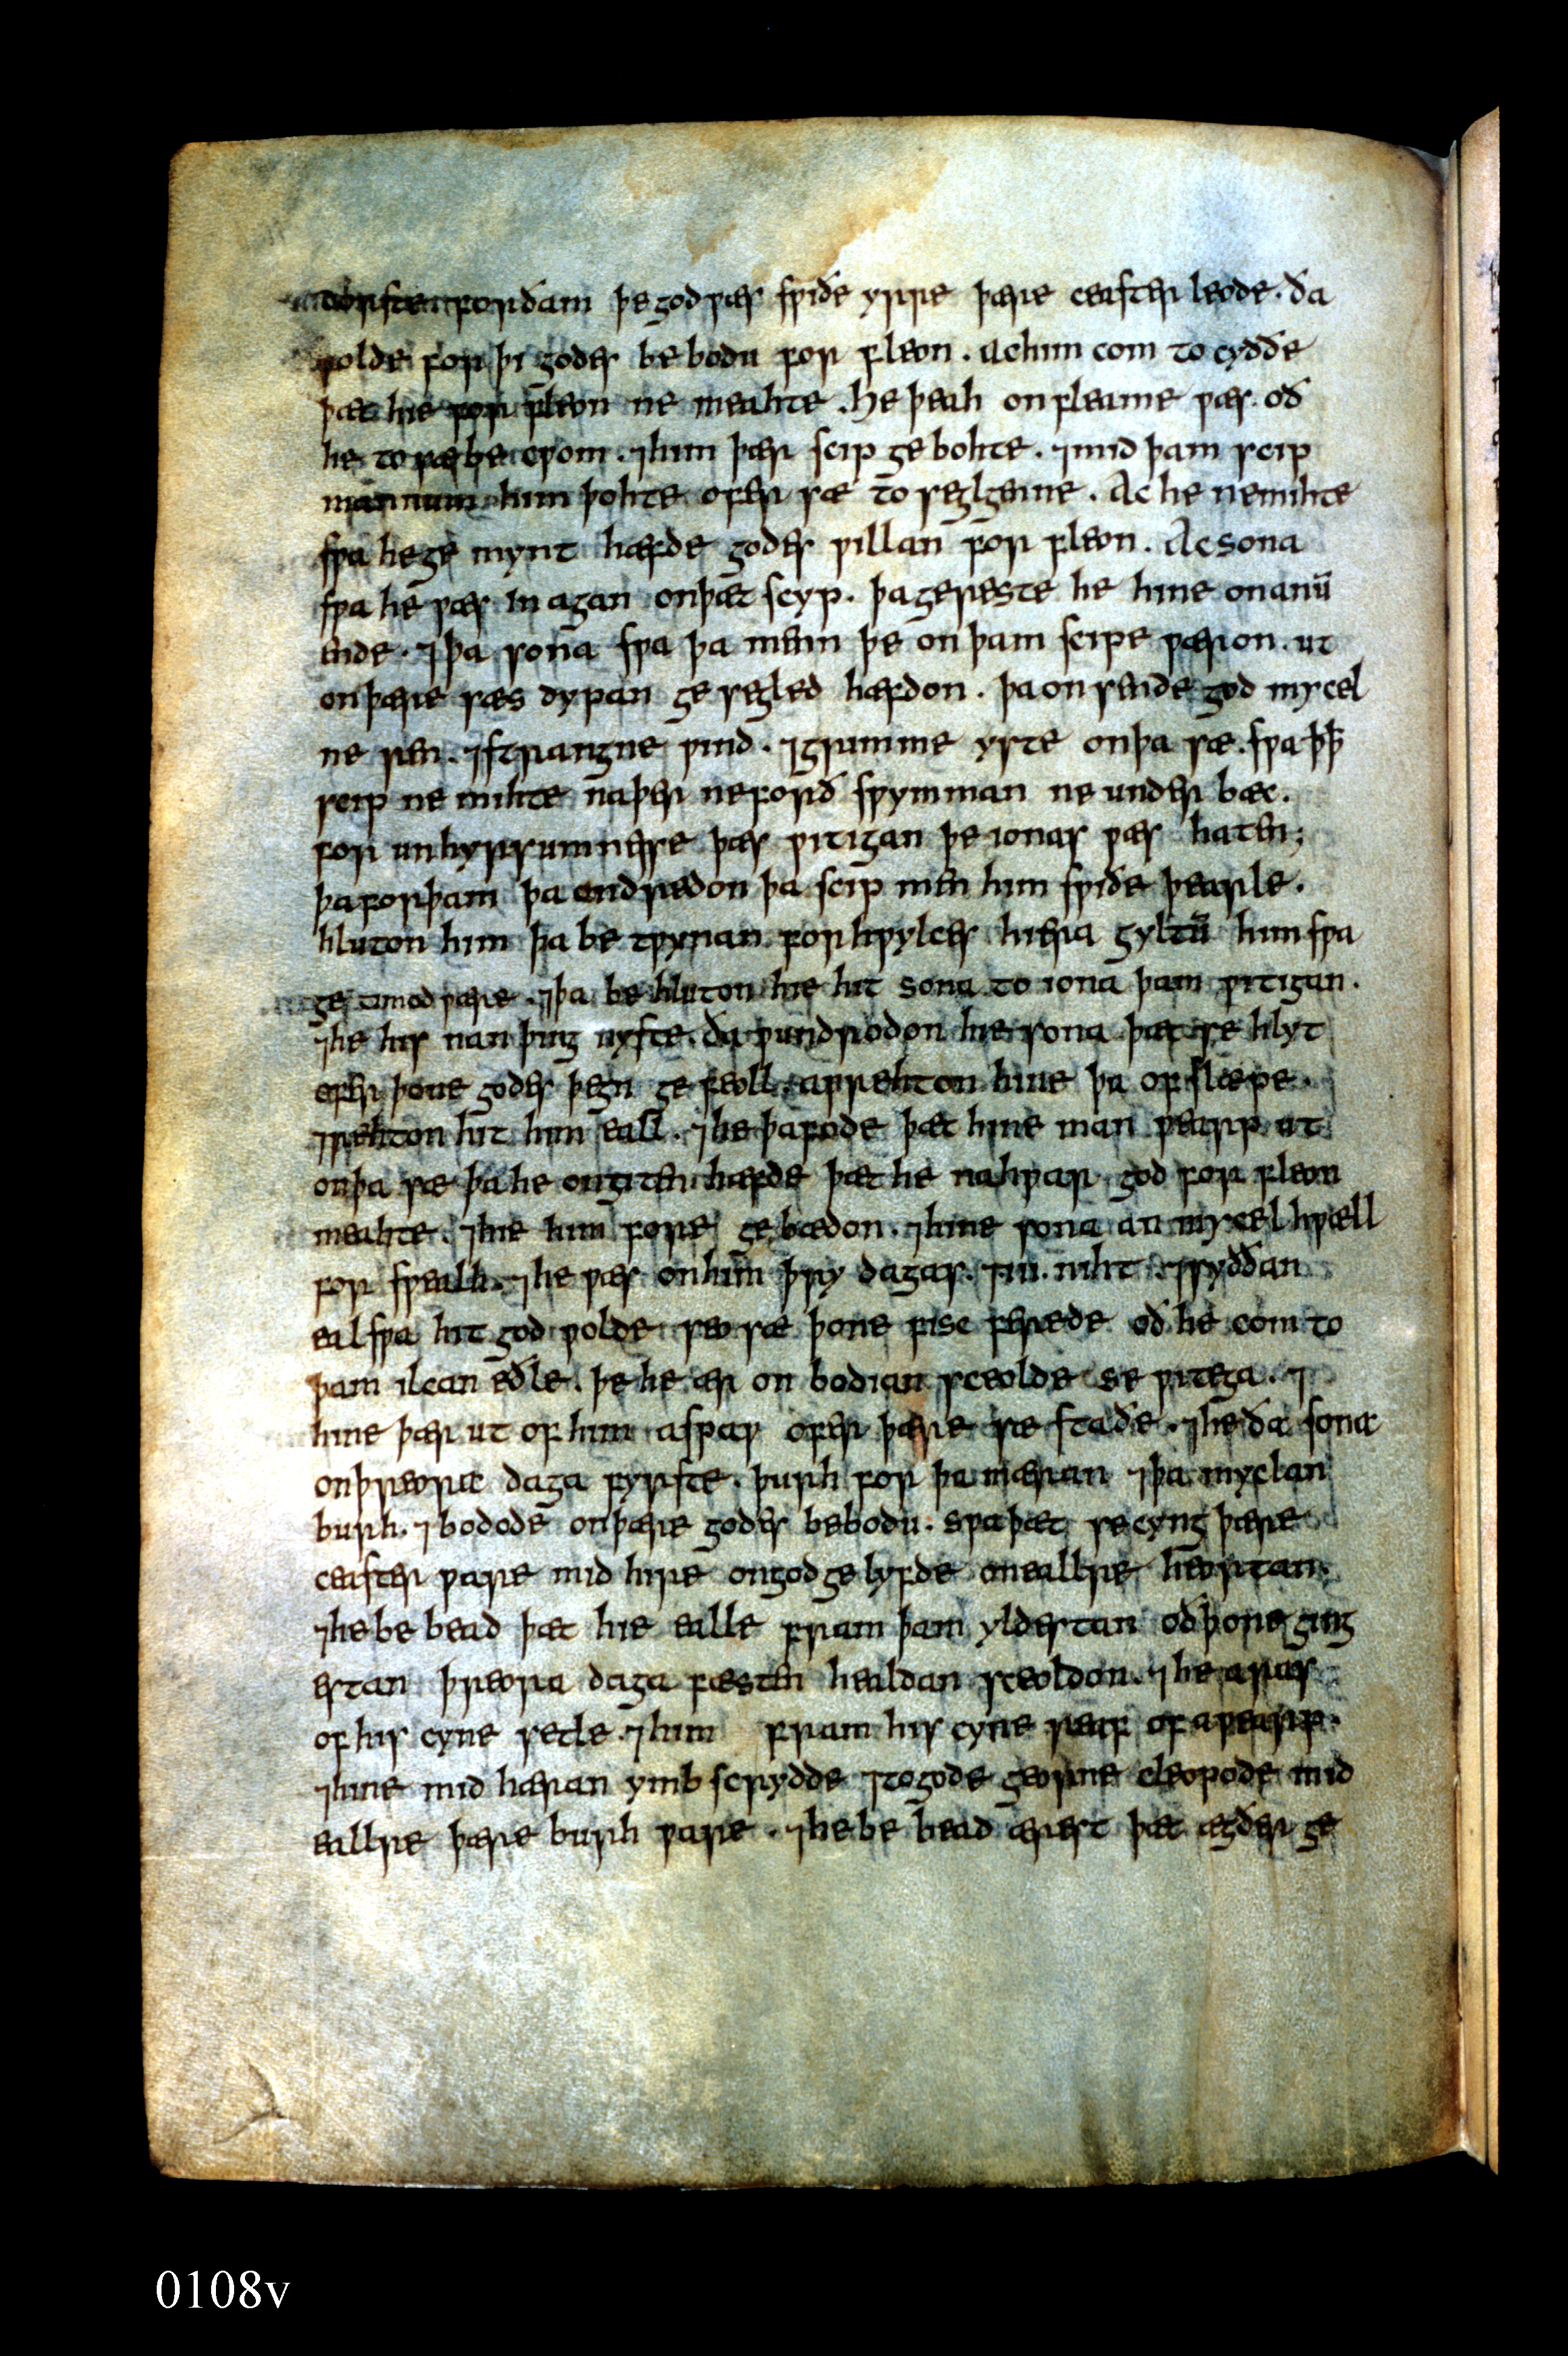 dorste forðam þe god ƿæs sƿiðe yrre þære ceaster leode. ða
ƿolde for þi godes be bodu for fleon. Ac him com to cyððe
þæt hie for fleon ne meahte. He þeah on fleame ƿæs. oð
he to sæ be cƿom. ⁊ him þær scip ge bohte. ⁊ mid þam scip
mannum him þohte ofer sæ to seglgenne. Ac he ne mihte
sƿa he ge mynt hæfde godes ƿillan for fleon. Ac sona
sƿa he ƿæs in agan on þæt scyp. þa gereste he hine on anū
ende. ⁊ þa sona sƿa þa menn þe on þam scipe ƿæron. ut
on þære sæs dypan ge segled hæfdon. þa on sende god mycel
ne ren. ⁊ strangne ƿind. ⁊ grimme yste on þa sæ. sƿa þꝥ
scip ne mihte naþer ne forð sƿymman ne under bæc.
for unhyrsumnesse þæs ƿitigan þe ionas ƿæs haten;
þa forþam þa ondredon þa scip men him sƿiðe þearle.
hluton him þa be tƿynan for hƿylces hiera gyltū him sƿa
ge timod ƿære. ⁊ þa be hluton hie hit sona to iona þam ƿitigan.
⁊ he his nan þing nyste. ða ƿundrodon hie sona þæt se hlyt
ofer þone godes þegn ge feoll. aƿrehton hine þa of slæpe.
⁊ rehton hit him eall. ⁊ he þafode þæt hine man ƿearp ut
on þa sæ þa he ongiten hæfde þæt he nahƿar god for fleon
meahte. ⁊ hie him fore ge bædon. ⁊ hine sona an mycel hƿæll
for sƿealh. ⁊ he ƿæs on him þry dagas. ⁊ iii. niht. ⁊ syððan
eal sƿa hit god ƿolde seo sæ þone fisc ferede oð he com to
þam ilcan eðle. þe he ær on bodian sceolde se ƿitega. ⁊
hine þær ut of him aspaƿ ofer þære sæ staðe. ⁊ he ða sona
on þreora daga fyrste. þurh for þa mæran ⁊ þa myclan
burh. ⁊ bodode on þære godes bebodu. sƿa þæt se cyng þære
ceaster ƿare mid hire on god ge lyfde on eallre heortan.
⁊ he be bead þæt hie ealle fram þam yldestan oð þone ging
estan þreora daga fæsten healdan sceoldon. ⁊ he aras
of his cyne setle. ⁊ him fram his cyne reaf of aƿearp.
⁊ hine mid hæran ymb scrydde ⁊ to gode georne cleopode mid
eallre þære burh ƿare. ⁊ he be bead ærest þæt ægðer ge
0108v